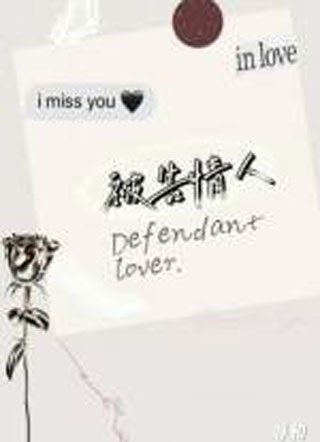 in love
i miss you 🖤
被告情人
Defendant
lover.